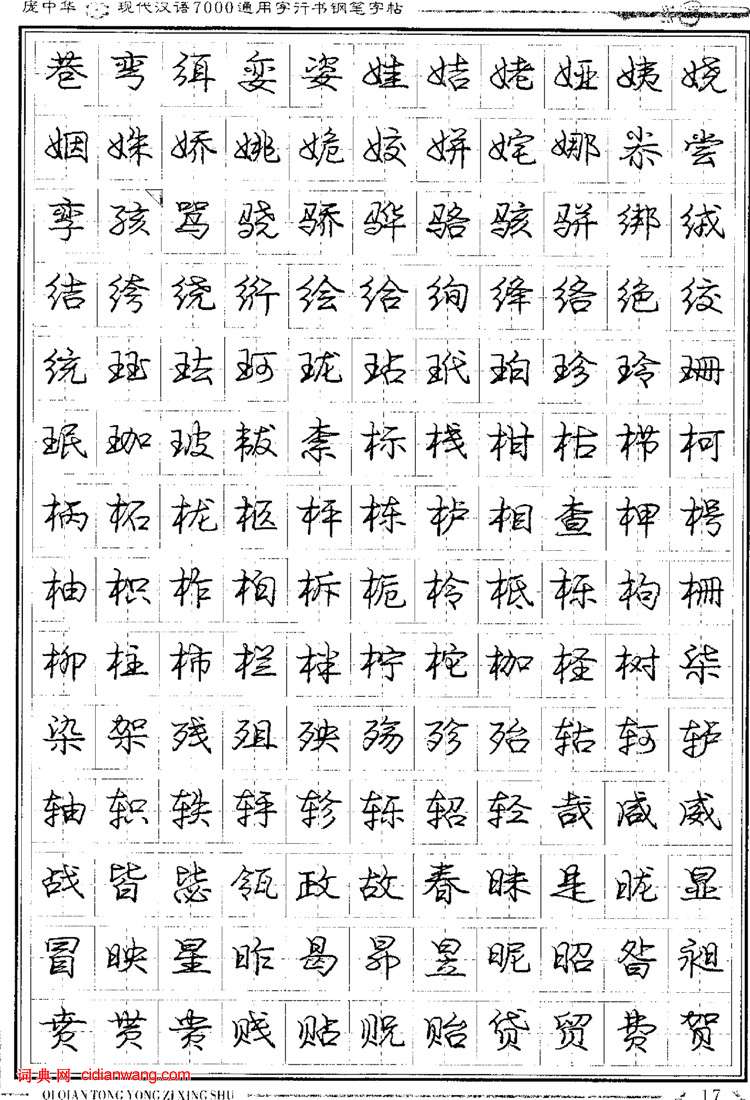 庞中华 现代汉语7000通用字行书钢笔字帖
巷弯缉娈姿娃姞姥娅姨娆
姻姝娇姚姽姣姘姹娜恭尝
孪孩骂骁骄骅骆骇骈绑绒
结绔绕绗绘给绚绛络绝绞
统珏珐珂珑玷玳珀珍玲珊
珉珈玻韨柰标栈柑枯栉柯
柄柘栊柩枰栋栌相查柙枵
柚枳柞柏柝栀柃柢栎枸栅
柳柱柿栏柈柠柁枷柽树柒
染架残殂殃殇殄殆轱轲轳
轴轵轶轷轸轹轺轻哉咸威
战皆毖瓴政故春昧是昽显
冒映星昨曷昴昱昵昭昝昶
贲贳贵贱贴贶贻贷贸费贺
词典网 cidianwang.com
QI QIAN TONG YONG ZI XING SHU
17